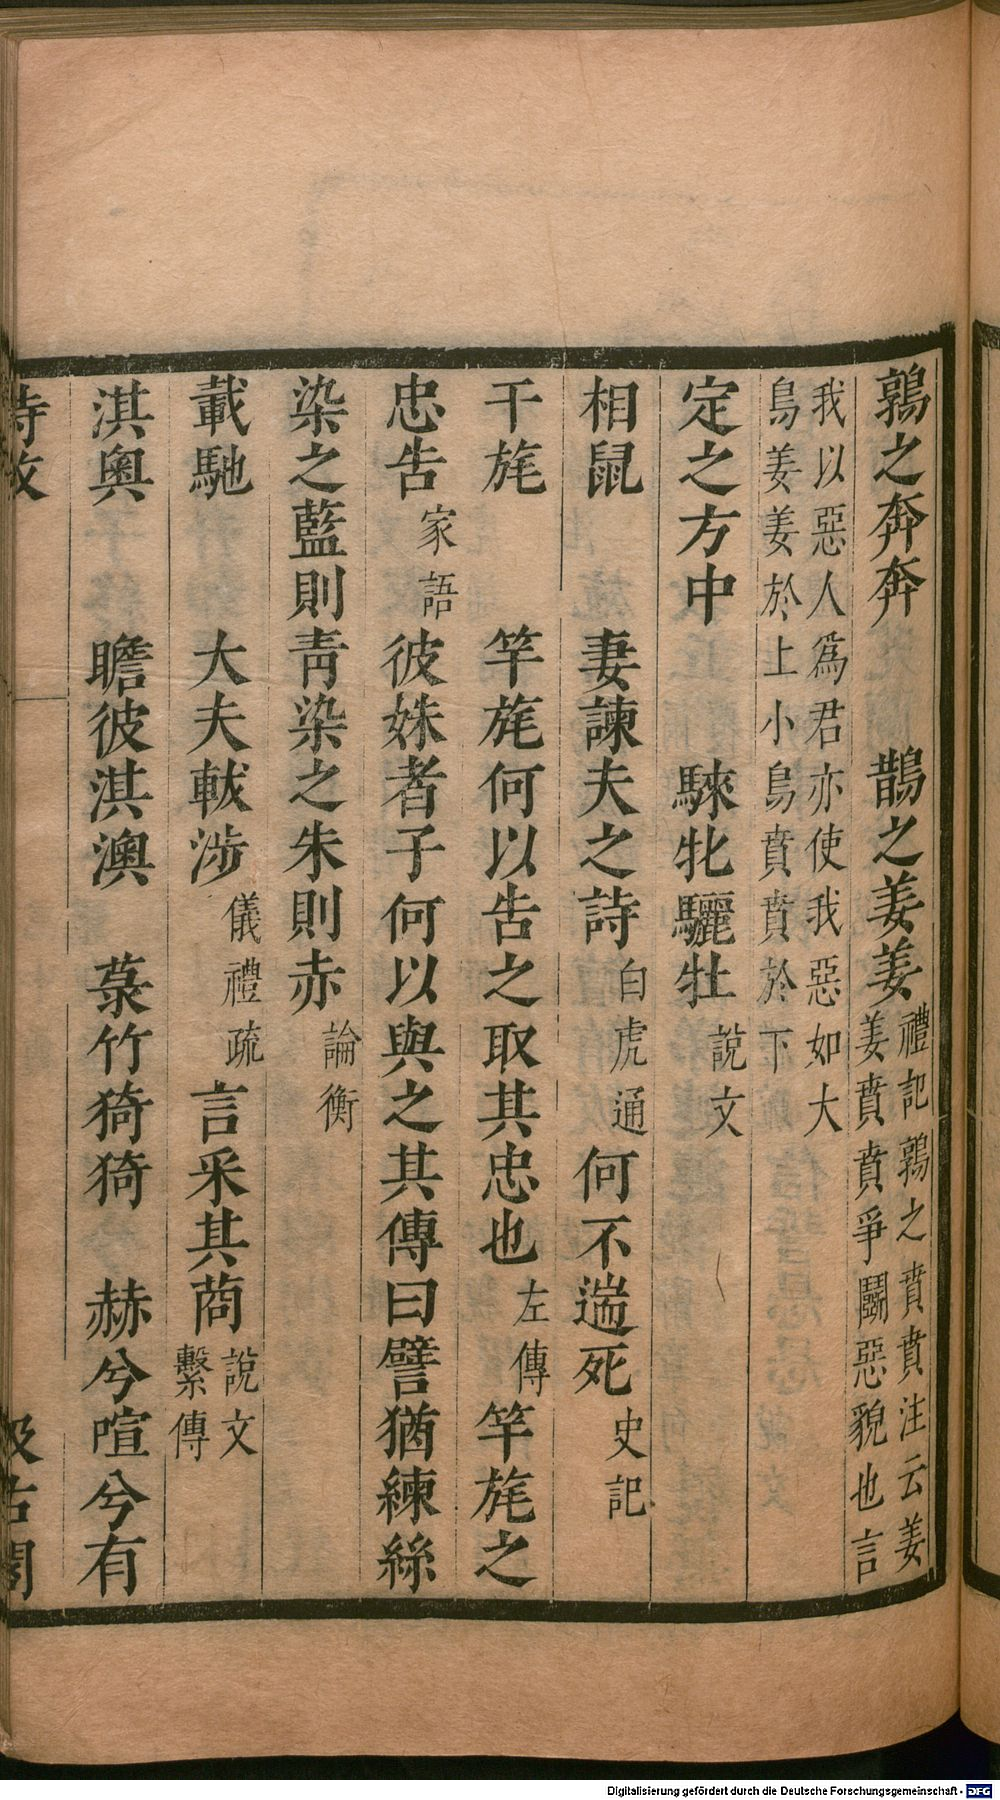 鶉之奔奔　鵲之姜姜禮記鶉之賁賁注云姜姜賁賁爭鬭惡貌也言
我以惡人爲君亦使我惡如大鳥姜姜於上小鳥賁賁於下
定之方中　騋牝驪牡說文
相鼠　妻諫夫之詩白虎通　何不遄死史記
干旄　竿旄何以告之取其忠也左傳　竿旄之
忠告家語　彼姝者子何以與之其傳曰譬猶練絲
染之藍則青染之朱則赤論衡
載馳　大夫軷涉儀禮疏　言采其莔說文繫傳
淇奧　瞻彼淇澳　菉竹猗猗　赫兮喧兮有
詩攷　汲古閣
Digitalisierung gefördert durch die Deutsche Forschungsgemeinschaft - DFG